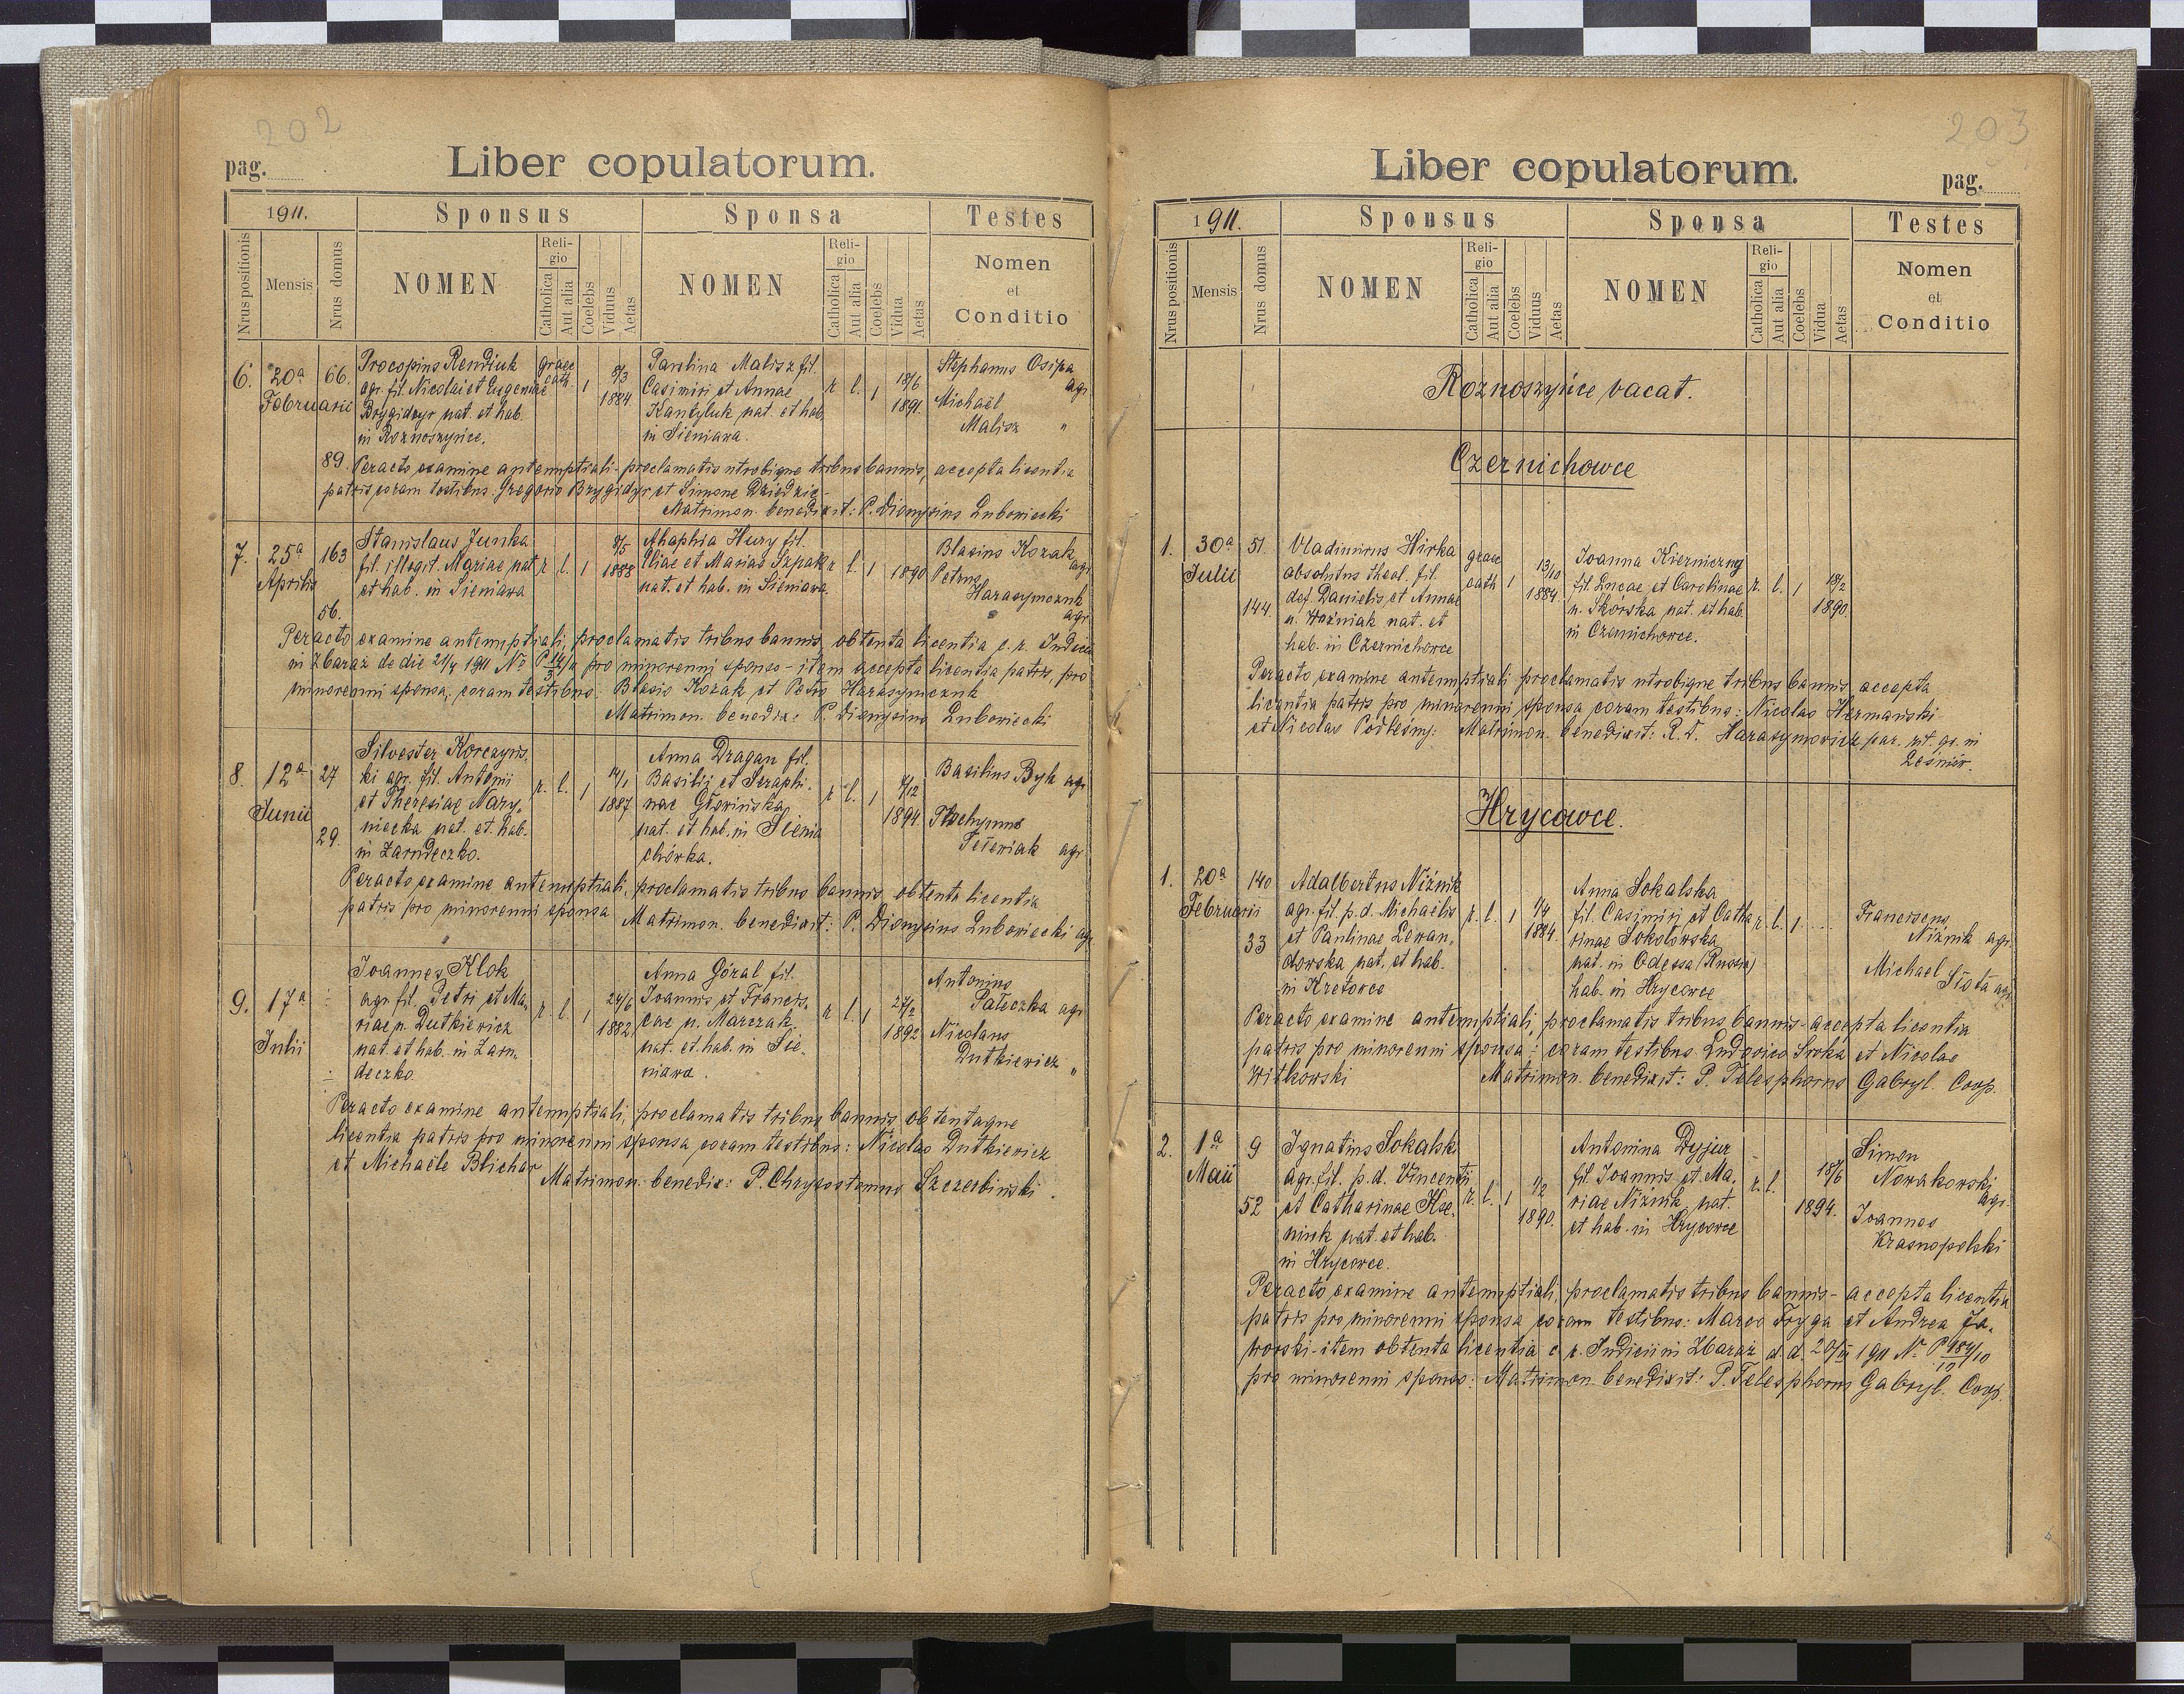 202
pag.
Liber copulatorum.
1911.
Sponsus
Sponsa
Testes
Nrus positionis
Mensis
Nrus domus
NOMEN
Religio
Catholica
Aut alia
Coelebs
Viduus
Aetas
NOMEN
Religio
Catholica
Aut alia
Coelebs
Vidua
Aetas
Nomen
et
Conditio
6.
20a
Februarii
66.
89.
Procopius Rendiuk
agr. fil. Nicolai et Eugeniae
Brygidyr nat. et hab.
in Roznoszyńce.
graec
cath.
1
8/3
1884
Paulina Malisz fil.
Casimiri et Annae
Kantyluk nat. et hab.
in Sieniawa.
r. l. 1
18/6
1891.
Stephanus Osipa
agr.
Michaël
Malisz "
Peracto examine antenuptiali - proclamatis utrobique tribus bannis, accepta licentia
patris coram testibus: Gregorio Brygidyr et Simone Dziedzic -
Matrimon. benedixit: P. Dionysius Luboviecki
7.
25a
Aprilis
163
56.
Stanislaus Junka
fil. illegit. Mariae nat.
et hab. in Sieniawa
r. l. 1
8/5
1888
Ahaphia Hury fil.
Iliae et Mariae Szpak
nat. et hab. in Sieniawa.
r. l. 1
1890
Blasius Kozak
agr
Petrus
Harasymczuk
agr
Peracto examine antenuptiali, proclamatis tribus bannis, obtenta licentia c. r. Judicii
in Zbaraż de die 21/4 1911 No P pro minorenni sponso - item accepta licentia patris, pro
minorenni sponsa, coram testibus: Blasio Kozak et Petro Harasymczuk
Matrimon. benedix: P. Dionysius Luboviecki
8.
12a
Junii
27
29.
Silvester Korczyńs.
ki agr. fil. Antonii
et Theresiae Nary.
niecka nat. et. hab.
in Zarudeczko.
r. l. 1
14/1
1887
Anna Dragan fil.
Basilii et Seraphi.
nae Głowińska
nat. et hab. in Sienia
chówka.
r l. 1
7/12
1894
Basilius Byk agr
agr
Peracto examine antenuptiali, proclamatis tribus bannis, obtenta licentia
patris pro minorenni sponsa Matrimon. benedixit: P. Dionysius Luboviecki
9.
17a
Julii
Joannes Klok
agr. fil. Petri et Ma.
riae n. Dutkiewicz
nat. et hab. in Zaru.
deczko
r. l. 1
24/6
1882
Anna Góral fil.
Joannis et Francis.
cae n. Marczak.
nat. et. hab. in Sie.
niawa.
r l. 1
27/2
1892
Antonius
Pateczka agr
Nicolaus
Dutkiewicz "
Peracto examine antenuptiali, proclamatis tribus bannis, obtentaque
licentia patris pro minorenni sponsa coram testibus: Nicolao Dutkiewicz
et Michaële Blichar
Matrimon. benedix: P. Chrysostomus Szczerbiński.
203
Liber copulatorum.
pag.
1911.
Sponsus
Sponsa
Testes
Nrus positionis
Mensis
Nrus domus
NOMEN
Religio
Catholica
Aut alia
Coelebs
Viduus
Aetas
NOMEN
Religio
Catholica
Aut alia
Coelebs
Vidua
Aetas
Nomen
et
Conditio
Roznoszyńce vacat.
Czernichowce
1.
30a
Julii
51.
144
Vladimirus Hirka
absolutus theol. fil.
def. Danielis et Annae
n. Woźniak nat. et
hab. in Czernichowce
graec
cath 1
13/10
1884.
Joanna Kierniczny
fil. Lucae, et Carolinae
n. Skórska nat. et hab.
in Czernichowce.
r. l. 1
18/2
1890.
Peracto examine antenuptiali proclamatis utrobique tribus bannis, accepta
licentia patris pro minorenni sponsa coram testibus: Nicolao Hermański
et Nicolao Podleśny: Matrimon. benedixit: R. D. Harasymowicz, par. rit. gr. in
Hrycowce.
1.
20a
Februarii
140
33
Adalbertus Niżnik
agr. fil. p. d. Michaëlis
et Paulinae Lewan.
dowska nat. et hab.
in Kretowce
r. l. 1
1/4
1884.
Anna Sokalska
fil. Casimiri et Catha
rinae Sokołowska
nat. in Odessa (Russia)
hab. in Hrycowce
r. l. 1
Franciscus
Niżnik agr.
Michael
Siota agr
Peracto examine antenuptiali, proclamatis tribus bannis - accepta licentia
patris pro minorenni sponsa: coram testibus: Ludovico Sroka et Nicolao
Witkowski
Matrimon. benedixit: P. Telesphorus Gabryl. Coop.
2.
1a
Maii
9
52
Ignatius Sokalsk.
agr. fil. p. d. Vincenti
et Catharinae Kse.
niuk nat. et hab.
in Hrycowce.
r. l. 1
1/2
1890.
Antonina Dyjur
fil. Joannis et Ma.
riae Niżnik nat.
et hab. in Hrycowce
r. l.
18/6
1894.
Simon
Nowakowski
agr.
Joannes
Krasnopolski
Peracto examine antenuptiali, proclamatis tribus bannis - accepta licentia
patris pro minorenni sponsa coram testibus: Marco Fryga et Andrea Ja.
worski - item obtenta licentia c. r. Judicii in Zbaraż d. d. 20/ 1911 No P
pro minorenni sponso: Matrimon. benedixit: P. Telesphorus Gabryl. Coop.